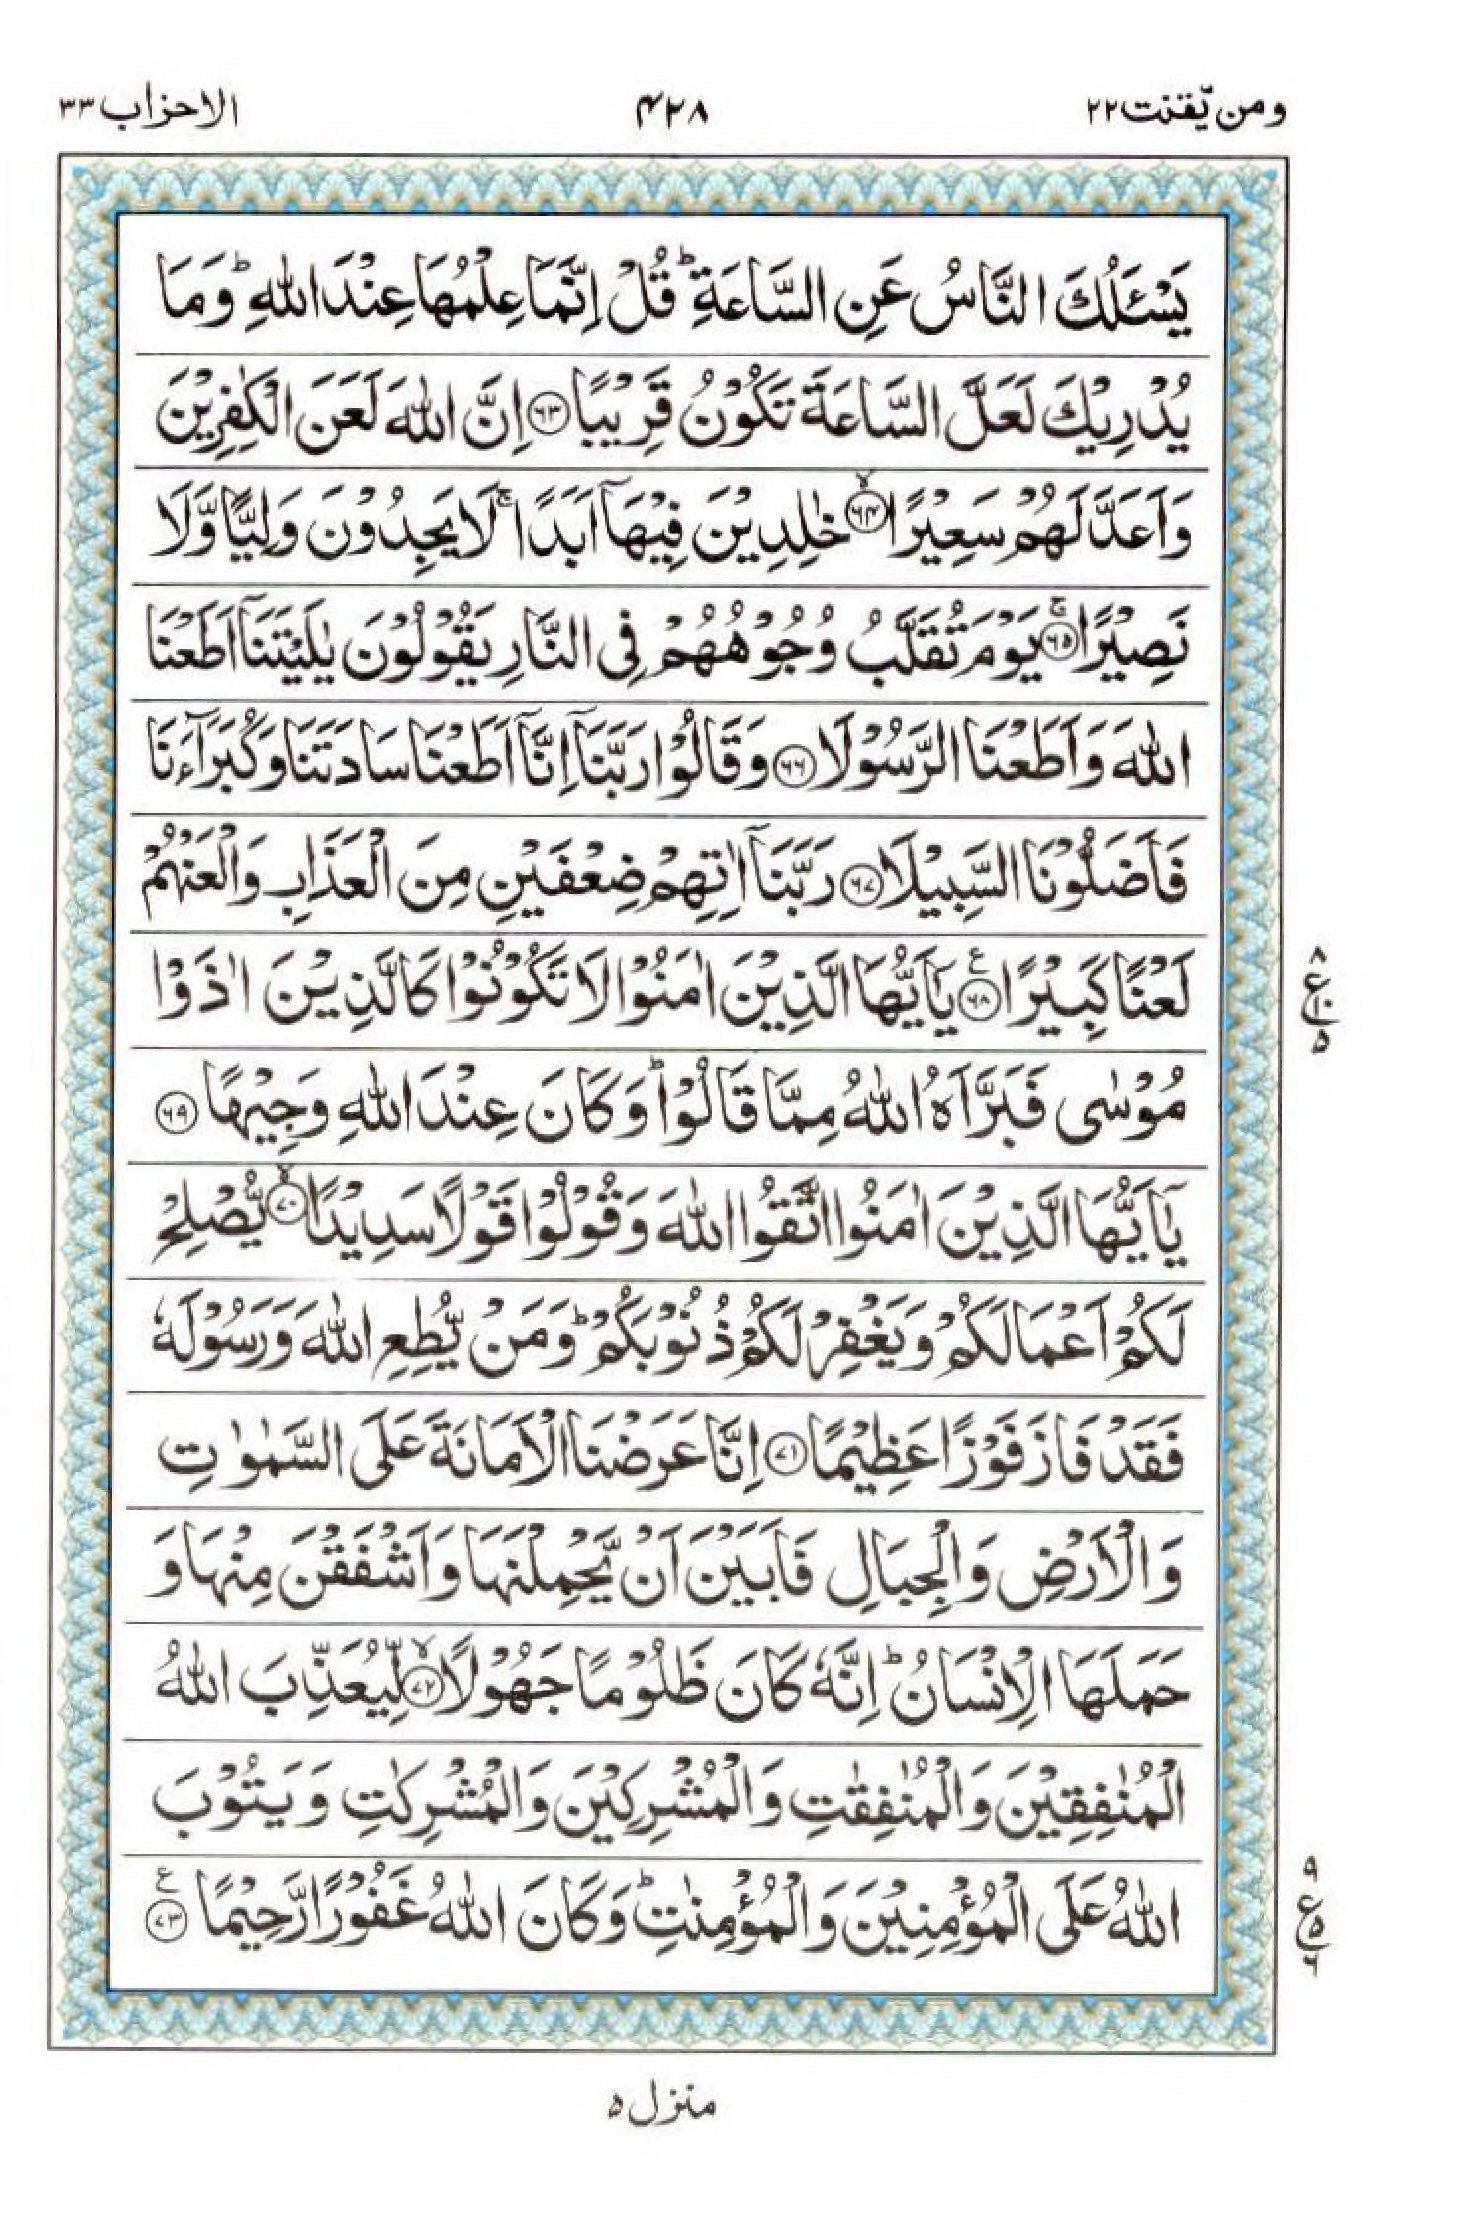 ومن یّقنت ٢٢
٤٢٨
الاحزاب ٣٣
يَسْـَٔلُكَ النَّاسُ عَنِ السَّاعَةِ ؕ قُلْ اِنَّمَا عِلْمُهَا عِنْدَ اللّٰهِ ؕ وَمَا
يُدْرِيْكَ لَعَلَّ السَّاعَةَ تَكُوْنُ قَرِيْبًا ﴿۶۳﴾ اِنَّ اللّٰهَ لَعَنَ الْكٰفِرِيْنَ
وَاَعَدَّ لَهُمْ سَعِيْرًا ﴿۶۴﴾ۙ خٰلِدِيْنَ فِيْهَاۤ اَبَدًا ۚ لَا يَجِدُوْنَ وَلِيًّا وَّلَا
نَصِيْرًا ﴿۶۵﴾ۚ يَوْمَ تُقَلَّبُ وُجُوْهُهُمْ فِى النَّارِ يَقُوْلُوْنَ يٰلَيْتَنَاۤ اَطَعْنَا
اللّٰهَ وَاَطَعْنَا الرَّسُوْلَا ﴿۶۶﴾ وَقَالُوْا رَبَّنَاۤ اِنَّاۤ اَطَعْنَا سَادَتَنَا وَكُبَرَآءَنَا
فَاَضَلُّوْنَا السَّبِيْلَا ﴿۶۷﴾ رَبَّنَاۤ اٰتِهِمْ ضِعْفَيْنِ مِنَ الْعَذَابِ وَالْعَنْهُمْ
لَعْنًا كَبِيْرًا ﴿۶۸﴾ع يٰۤاَيُّهَا الَّذِيْنَ اٰمَنُوْا لَا تَكُوْنُوْا كَالَّذِيْنَ اٰذَوْا
٨
ع
١٠
٥
مُوْسٰى فَبَرَّاَهُ اللّٰهُ مِمَّا قَالُوْا ؕ وَكَانَ عِنْدَ اللّٰهِ وَجِيْهًا ﴿۶۹﴾
يٰۤاَيُّهَا الَّذِيْنَ اٰمَنُوا اتَّقُوا اللّٰهَ وَقُوْلُوْا قَوْلًا سَدِيْدًا ﴿۷۰﴾ۙ يُّصْلِحْ
لَكُمْ اَعْمَالَكُمْ وَيَغْفِرْ لَكُمْ ذُنُوْبَكُمْ ؕ وَمَنْ يُّطِعِ اللّٰهَ وَرَسُوْلَهٗ
فَقَدْ فَازَ فَوْزًا عَظِيْمًا ﴿۷۱﴾ اِنَّا عَرَضْنَا الْاَمَانَةَ عَلَى السَّمٰوٰتِ
وَالْاَرْضِ وَالْجِبَالِ فَاَبَيْنَ اَنْ يَّحْمِلْنَهَا وَاَشْفَقْنَ مِنْهَا وَ
حَمَلَهَا الْاِنْسَانُ ؕ اِنَّهٗ كَانَ ظَلُوْمًا جَهُوْلًا ﴿۷۲﴾ۙ لِّيُعَذِّبَ اللّٰهُ
الْمُنٰفِقِيْنَ وَالْمُنٰفِقٰتِ وَالْمُشْرِكِيْنَ وَالْمُشْرِكٰتِ وَيَتُوْبَ
اللّٰهُ عَلَى الْمُؤْمِنِيْنَ وَالْمُؤْمِنٰتِ ؕ وَكَانَ اللّٰهُ غَفُوْرًا رَّحِيْمًا ﴿۷۳﴾ع
٩
ع
٥
٦
منزل ٥